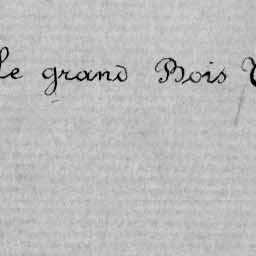 le grand Bois